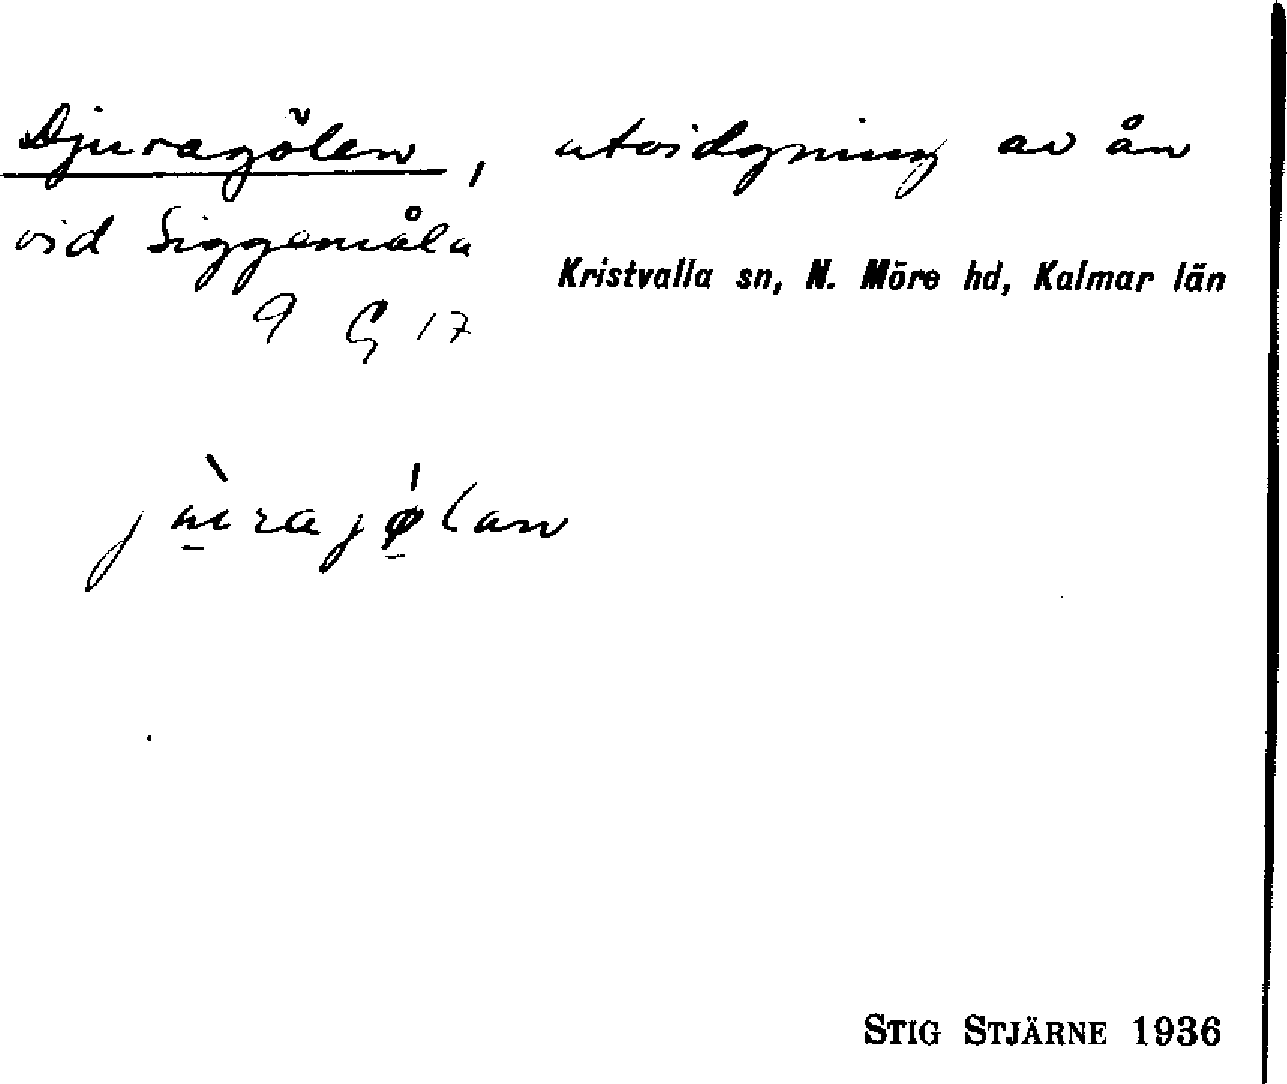 Djuragölen, utvidgning av ån
vid Siggamåla
Kristvalla sn, N. Möre hd, Kalmar län
9 G 17
jùrajǿlan
STIG STJÄRNE 1936